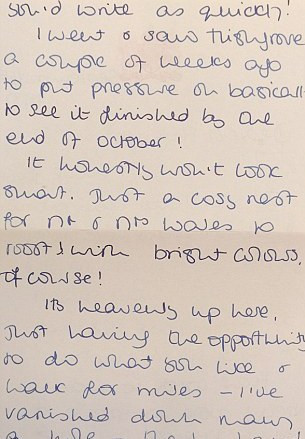 you'd write as quickly!
I went & saw Highgrove
a couple of weeks ago
to put pressure on basicall
to see it finished by the
end of October!
It honestly won't look
smart. Just a cosy nest
for Mr & Mrs Wales to
roost! with bright colours,
of course!
Its heavenly up here,
Just having the opportunit
to do what you like &
walk for miles - I've
vanished down many
a hole